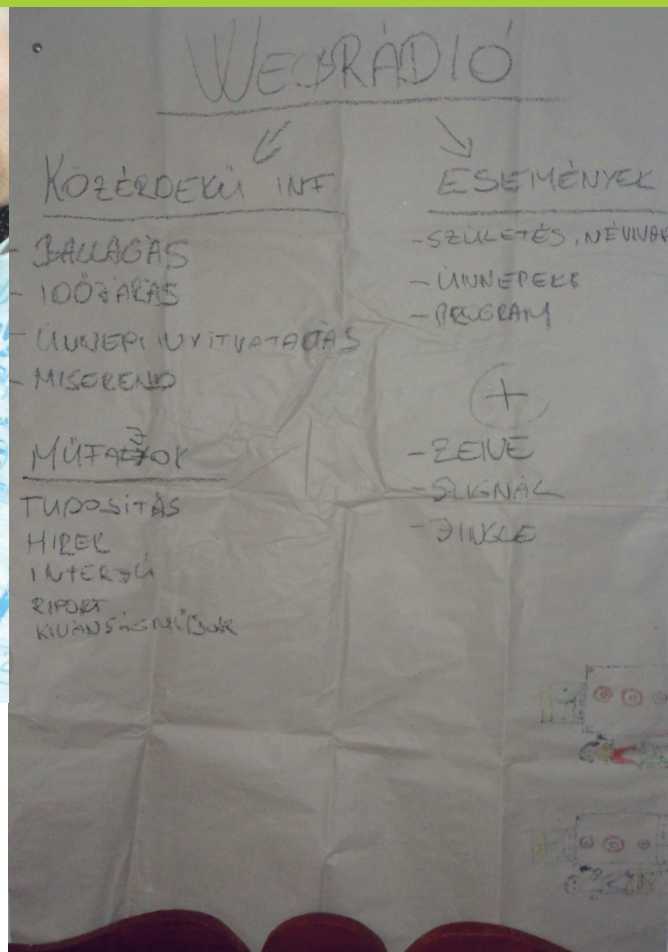 WEBRÁDIÓ
KÖZÉRDEKŰ INF
- BALLAGÁS
- IDŐJÁRÁS
- ÜNNEPI NYITVATARTÁS
- MISEREND
MŰFAJOK
TUDOSÍTÁS
HIREK
INTERJÚ
RIPORT
KIVÁNSÁGMŰSOR
ESEMÉNYEK
- SZÜLETÉS, NÉVNAP
- ÜNNEPEK
- PROGRAM
+
- ZENE
- SZIGNÁL
- JINGLE